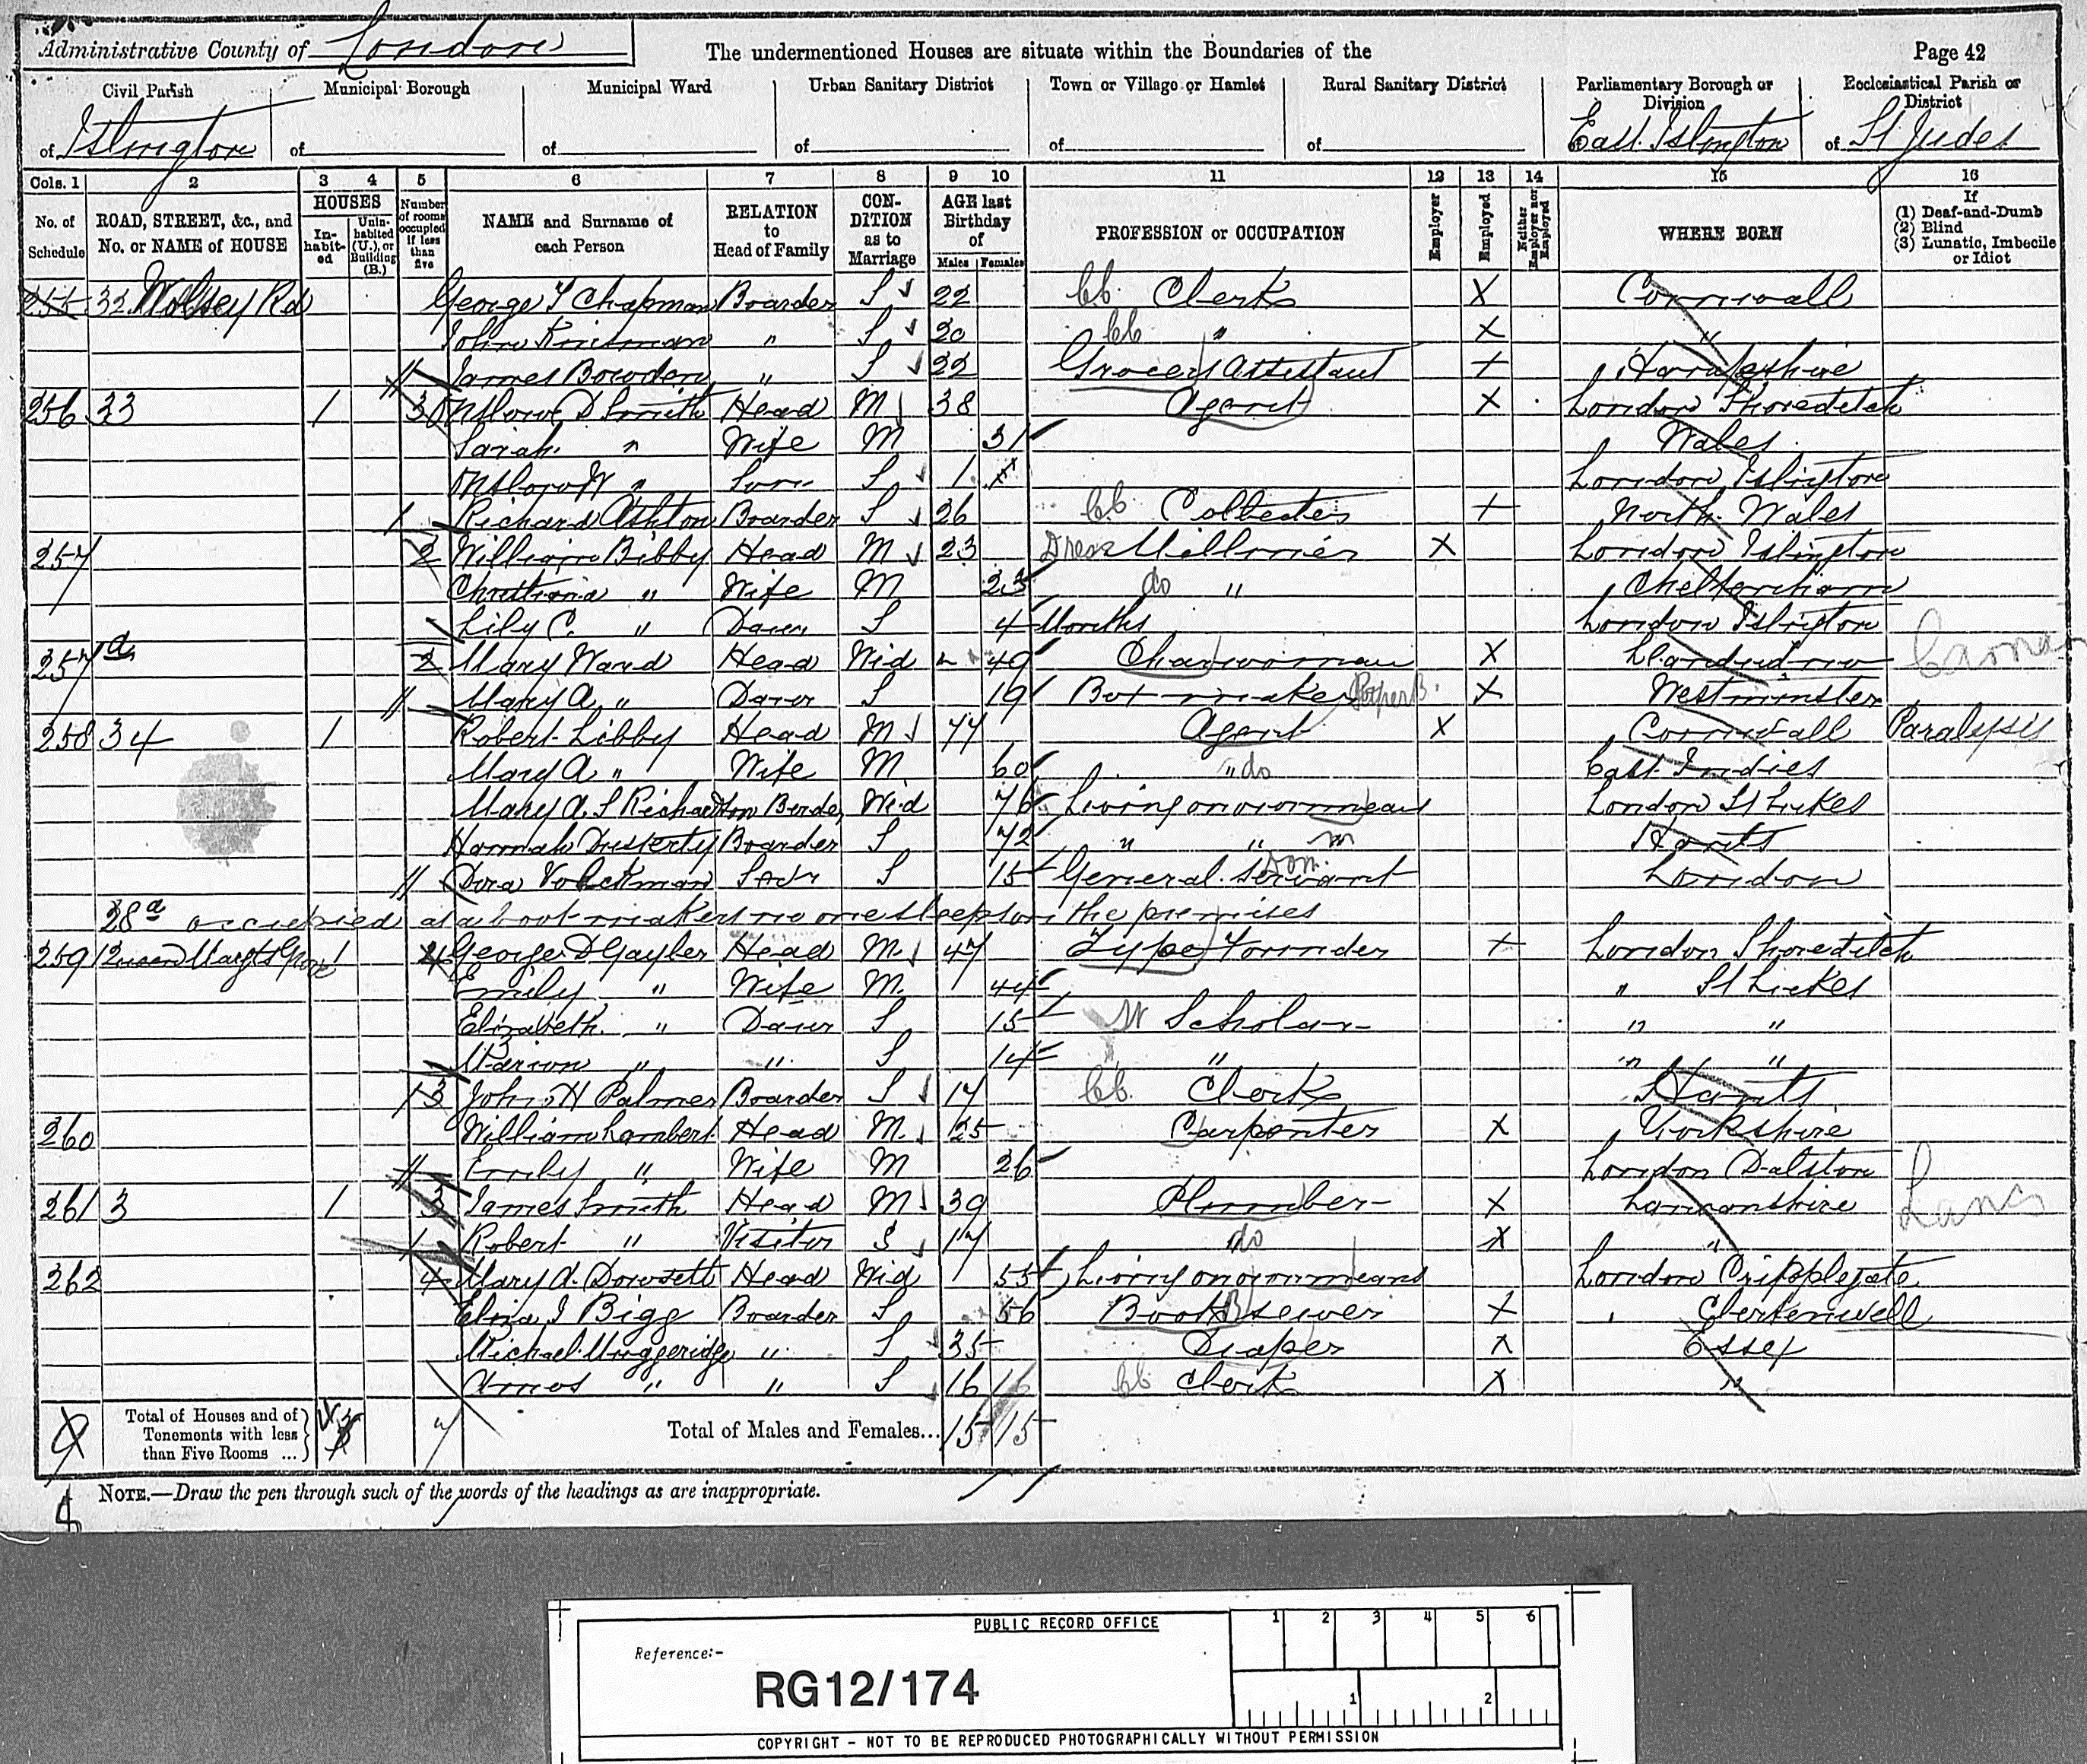 Administrative County of London The undermentioned Houses are situate within the Boundaries of the Page 42
Civil Parish Municipal Borough Municipal Ward Urban Sanitary District Town or Village or Hamlet Rural Sanitary District Parliamentary Borough or Division Ecclesiastical Parish or District
of Islington of of of of of East Islington of St Judes
Cols. 1 2 3 4 5 6 7 8 9 10 11 12 13 14 15 16
No. of Schedule ROAD, STREET, &c., and No. or NAME of HOUSE HOUSES Inhabited Uninhabited (U.), or Building (B.) Number of rooms occupied if less than five NAME and Surname of each Person RELATION to Head of Family CONDITION as to Marriage AGE last Birthday of Males Females PROFESSION or OCCUPATION Employer Employed Neither Employer nor Employed WHERE BORN If (1) Deaf-and-Dumb (2) Blind (3) Lunatic, Imbecile or Idiot
255 32 Wolsey Rd George T Chapman Boarder S 22 Clerk X Cornwall
John Kinsman " S 20 " X "
James Bowden " S 22 Grocers Assistant X Hampshire
256 33 1 3 Onslow D Smith Head M 38 Agent X London Shoreditch
Sarah " Wife M 31 Wales
Onslow W " Son S 1 London Islington
Richard Ashton Boarder S 26 Collector X North Wales
257 2 William Bibby Head M 23 Dress Milliner X London Islington
Christiana " Wife M 23 do " Cheltenham
Lily C. " Daur S 4 Months London Islington
257a 2 Mary Ward Head Wid 49 Charwoman X Llandudno
Mary A. " Daur S 19 Box maker Paper B. X Westminster
258 34 1 Robert Libby Head M 77 Agent X Cornwall Paralysis
Mary A " Wife M 60 " do East Indies
Mary A. S Richardson Border Wid 76 Living on own means London St Lukes
Hannah Boarder S 72 " " Hants
Dora Volckman Servt S 15 General Servant Dom. London
28a occupied as a boot makers no one sleeps on the premises
259 1 Queen Margts Grove 1 4 George D Gayler Head M 47 Type Founder X London Shoreditch
Emily " Wife M. 44 " St Lukes
Elizabeth " Daur S 15 Scholar " "
Marion " " S 14 " " "
John H Palmer Boarder S 17 Clerk Hants
260 3 William Lambert Head M. 25 Carpenter X Yorkshire
Emily " Wife M 26 London Dalston
261 3 1 3 James Smith Head M 39 Plumber X Lancanshire Lancs
Robert " Visitor S 17 do X "
262 4 Mary A. Dowsett Head Wid 55 Living on own means London Cripplegate
Eliza J Bigg Boarder S 56 Book sewer X " Clerkenwell
Michael Muggeridge " S 35 Draper X Essex
Amos " " S 16 Clerk X "
Total of Houses and of Tenements with less than Five Rooms ... 7 Total of Males and Females... 15 15
NOTE.—Draw the pen through such of the words of the headings as are inappropriate.
PUBLIC RECORD OFFICE 1 2 3 4 5 6
Reference:-
RG12/174 1 2
COPYRIGHT - NOT TO BE REPRODUCED PHOTOGRAPHICALLY WITHOUT PERMISSION